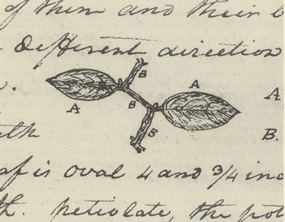 of them and their b
different direction
A
B
A
A
B
B
A
B.
th
af is oval 4 and 3/4 inc
th. petiolate, the pet